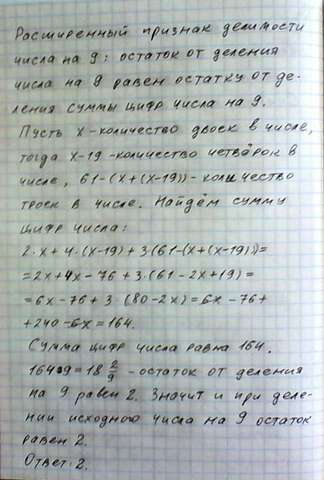 Расширенный признак делимости
числа на 9: остаток от деления
числа на 9 равен остатку от де-
ления суммы цифр числа на 9.
Пусть х - количество двоек в числе,
тогда х-19 - количество четвёрок в
числе, 61-(х+(х-19)) - количество
троек в числе. Найдём сумму
цифр числа:
2·х+4·(х-19)+3(61-(х+(х-19))=
=2х+4х-76+3·(61-2х+19)=
=6х-76+3·(80-2х)=6х-76+
+240-6х=164.
Сумма цифр числа равна 164.
164:9=18 2/9 - остаток от деления
на 9 равен 2. Значит и при деле-
нии исходного числа на 9 остаток
равен 2.
Ответ: 2.